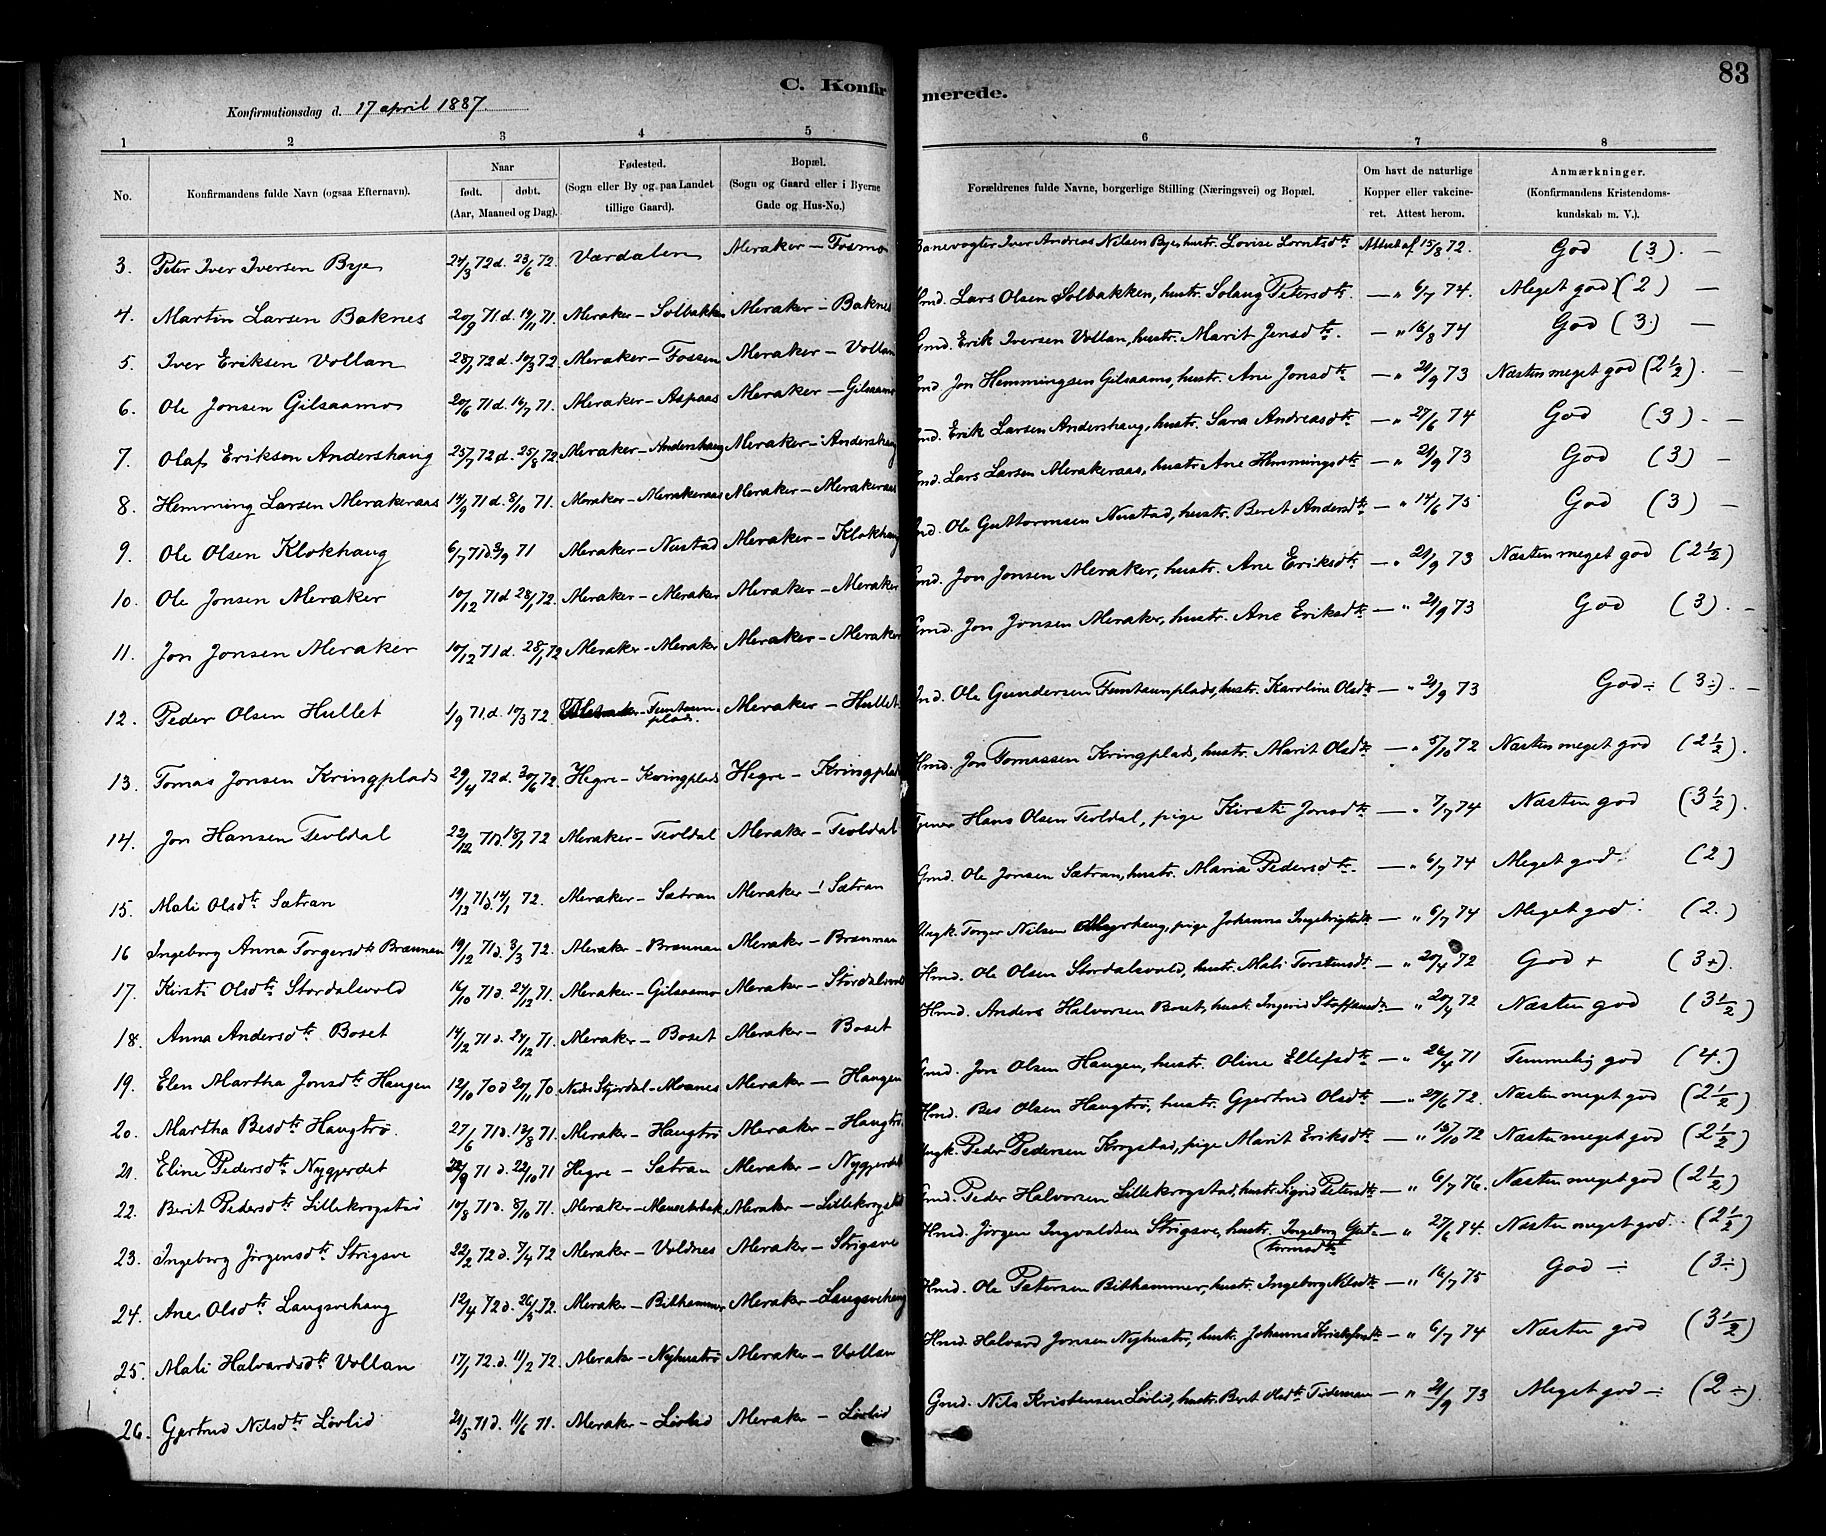 83
C. Konfirmerede.
Konfirmationsdag d. 17 april 1887.
1 2 3 4 5 6 7 8
No. Konfirmandens fulde Navn (ogsaa Efternavn). Naar født. døbt. (Aar, Maaned og Dag). Fødested. (Sogn eller By og paa Landet tillige Gaard). Bopæl. (Sogn og Gaard eller i Byerne Gade og Hus-No.) Forældrenes fulde Navne, borgerlige Stilling (Næringsvei) og Bopæl. Om havt de naturlige Kopper eller vakcineret. Attest herom. Anmærkninger. (Konfirmandens Kristendomskundskab m. V.).
3. Peter Iver Iversen Bye 24/3 72 d. 23/6 72. Værdalen Meraker – Fosmo Banevogter Iver Andreas Nilsen Bye, hustr. Lovise Lorntsdtr Attest af 15/8 72. God (3). —
4. Martin Larsen Baknes 20/9 71 d. 19/11 71. Meraker – Solbakken Meraker – Baknes Hmd. Lars Olsen Solbakken, hustr. Solaug Petersdtr. — " 6/7 74. Meget god (2) —
5. Iver Eriksen Vollan 28/1 72 d. 10/3 72 Meraker – Fossen Meraker – Vollan Gmd. Erik Iversen Vollan, hustr. Marit Jensdtr. — " 16/8 74 God (3.) —
6. Ole Jonsen Gilsaamo 20/6 71 d. 16/7 71. Meraker – Aspaas Meraker – Gilsaamo Hmd. Jon Hemmingsen Gilsaamo, hustr. Ane Jonsdtr — " 21/9 73 Næsten meget god (2 1/2). —
7. Olaf Eriksen Andershaug 25/7 72 d. 25/8 72 Meraker – Andershaug Meraker – Andershaug Hmd. Erik Larsen Andershaug, hustr. Sara Andreasdtr — " 27/6 74 God (3) . —
8. Hemming Larsen Merakeraas 14/9 71 d. 8/10 71. Meraker – Merakeraas Meraker – Merakeraas Hmd. Lars Larsen Merakeraas, hustr. Ane Hemmingsdtr — " 21/9 73 God (3) —
9. Ole Olsen Klokhaug 6/7 71 d. 3/9 71 Meraker – Nustad Meraker – Klokhaug Ole Guttormsen Nustad, hustr. Beret Andersdtr — " 14/6 75 God (3) —
10. Ole Jonsen Meraker 10/12 71 d. 28/1 72. Meraker – Meraker Meraker – Meraker Gmd. Jon Jonsen Meraker, hustr. Ane Eriksdtr — " 21/9 73 Næsten meget god (2 1/2)
11. Jon Jonsen Meraker 10/12 71 d. 28/1 72 Meraker – Meraker Meraker – Meraker Gmd. Jon Jonsen Meraker, hustr. Ane Eriksdtr — " 21/9 73 God (3). —
12. Peder Olsen Hullet 1/9 71 d. 10/3 72. – Funtaunplads. Meraker – Hullet Ole Gundersen Funtaunplads, hustr. Karoline Olsdtr — " 21/9 73 God ÷ (3 ÷). —
13. Tomas Jonsen Kringplads 29/4 72 d. 30/6 72. Hegre – Kringplads Hegre – Kringplads Hmd. Jon Tomassen Kringplads, hustr. Marit Olsdtr — " 5/10 72 Næsten meget god (2 1/2).
14. Jon Hansen Tevldal 22/12 71 d. 18/1 72 Meraker – Tevldal Meraker – Tevldal Tjener Hans Olsen Tevldal, pige Kirsti Jonsdtr — " 7/7 74 Næsten god (3 1/2).
15. Mali Olsdtr Sætran 19/12 71 d. 14/1 72. Meraker – Sætran Meraker – Sætran Gmd. Ole Jonsen Sætran, hustr. Maria Pedersdtr. — " 6/7 74 Meget god. (2)
16 Ingeborg Anna Torgersdtr Brænnan 19/12 71 d. 3/3 72. Meraker – Brænnan Meraker – Brænnan Ungk. Torger Nilsen pige Johanna Ingebrigtsdtr — " 6/7 74 Meget god. (2.)
17. Kirsti Olsdtr Stordalsvold 16/10 71 d. 24/12 71. Meraker – Gilsaamo Meraker – Stordalsvold Hmd. Ole Olsen Stordalsvold, hustr. Mali Torstensdtr — " 20/4 72 God + (3+).
18. Anna Andersdtr Boset 14/12 71 d. 24/12 71. Meraker – Boset Meraker – Boset Hmd. Anders Halvorsen Boset, hustr. Ingerid Staffansdtr — " 20/4 72 Næsten god (3 1/2)
19. Elen Martha Jonsdtr Haugen 12/10 70 d. 20/11 70. Nedr Stjørdal – Moanes Meraker – Haugen Gmd. Jon Olsen Haugen, hustr. Oline Ellefsdtr — " 26/4 71 Temmelig god (4.)
20. Martha Besdtr Haugtrø. 27/6 71 d. 13/8 71. Meraker – Haugtrø Meraker – Haugtrø Hmd. Bes Olsen Haugtrø, hustr. Gjertrud Olsdtr — " 27/6 72. Næsten meget god (2 1/2)
21. Eline Pedersdtr Nygjerdet 22/9 71 d. 22/10 71 Hegre – Sætran Meraker – Nygjerdet Ungk. Peder Pedersen Krogstad, pige Marit Eriksdtr — " 15/10 72 Næsten meget god (2 1/2)
22. Berit Pedersdtr Lillekrogstad 10/8 71 d. 8/10 71. Meraker – Meraker – Lillekrogstad Gmd. Peder Halvorsen Lillekrogstad, hustr. Sigrid Petersdtr — " 6/7 76. Næsten meget god (2 1/2)
23. Ingeborg Jørgensdtr Strigsve 22/2 72 d. 7/4 72 Meraker – Voldnes Meraker – Strigsve Hmd. Jørgen Ingvaldsen Strigsve, hustr. Ingeborg Guttormsdtr — " 27/6 74. Næsten meget god. (2 1/2)
24. Ane Olsdtr Langsvehaug 12/4 72 d. 26/5 72. Meraker – Bithammer Meraker – Langsvehaug Hmd. Ole Petersen Bithammer, hustr. Ingeborg Nilsdtr — " 16/7 75 God ÷ (3 ÷)
25. Mali Halvardsdtr Vollan 17/1 72. d. 11/2 72. Meraker – Nyhustrø Meraker – Vollan Hmd. Halvard Jonsen Nyhustrø, hustr. Johanna Kristofersdtr — " 6/7 74 Næsten god (3 1/2)
26. Gjertrud Nilsdtr Lövlid 21/5 71 d. 11/6 71. Meraker – Lövlid Meraker – Lövlid Gmd. Nils Kristensen Lövlid, hustr. Beret Olsdtr Tideman — " 21/9 73 Meget god ÷ (2 ÷)